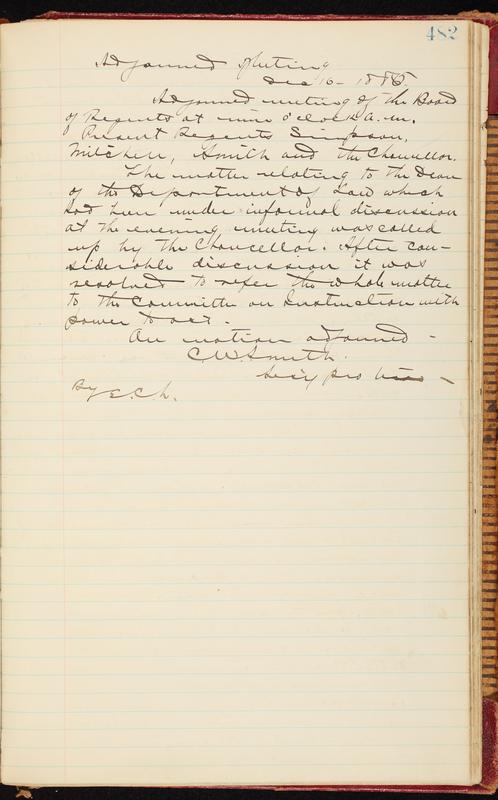 482
Adjourned Meeting
Dec 16 - 1885.
Adjourned meeting of the Board
of Regents at nine o'clock A.M.
Present Regents Simpson,
Mitchell, Smith and the Chancellor.
The matter relating to the Dean
of the Department of Law which
had been under informal discussion
at the evening meeting was called
up by the Chancellor. After con-
siderable discussion it was
resolved to refer the whole matter
to the Committee on Instruction with
power to act -
On motion adjourned -
C.W. Smith.
Sec'y pro tem -
By E.C.h.